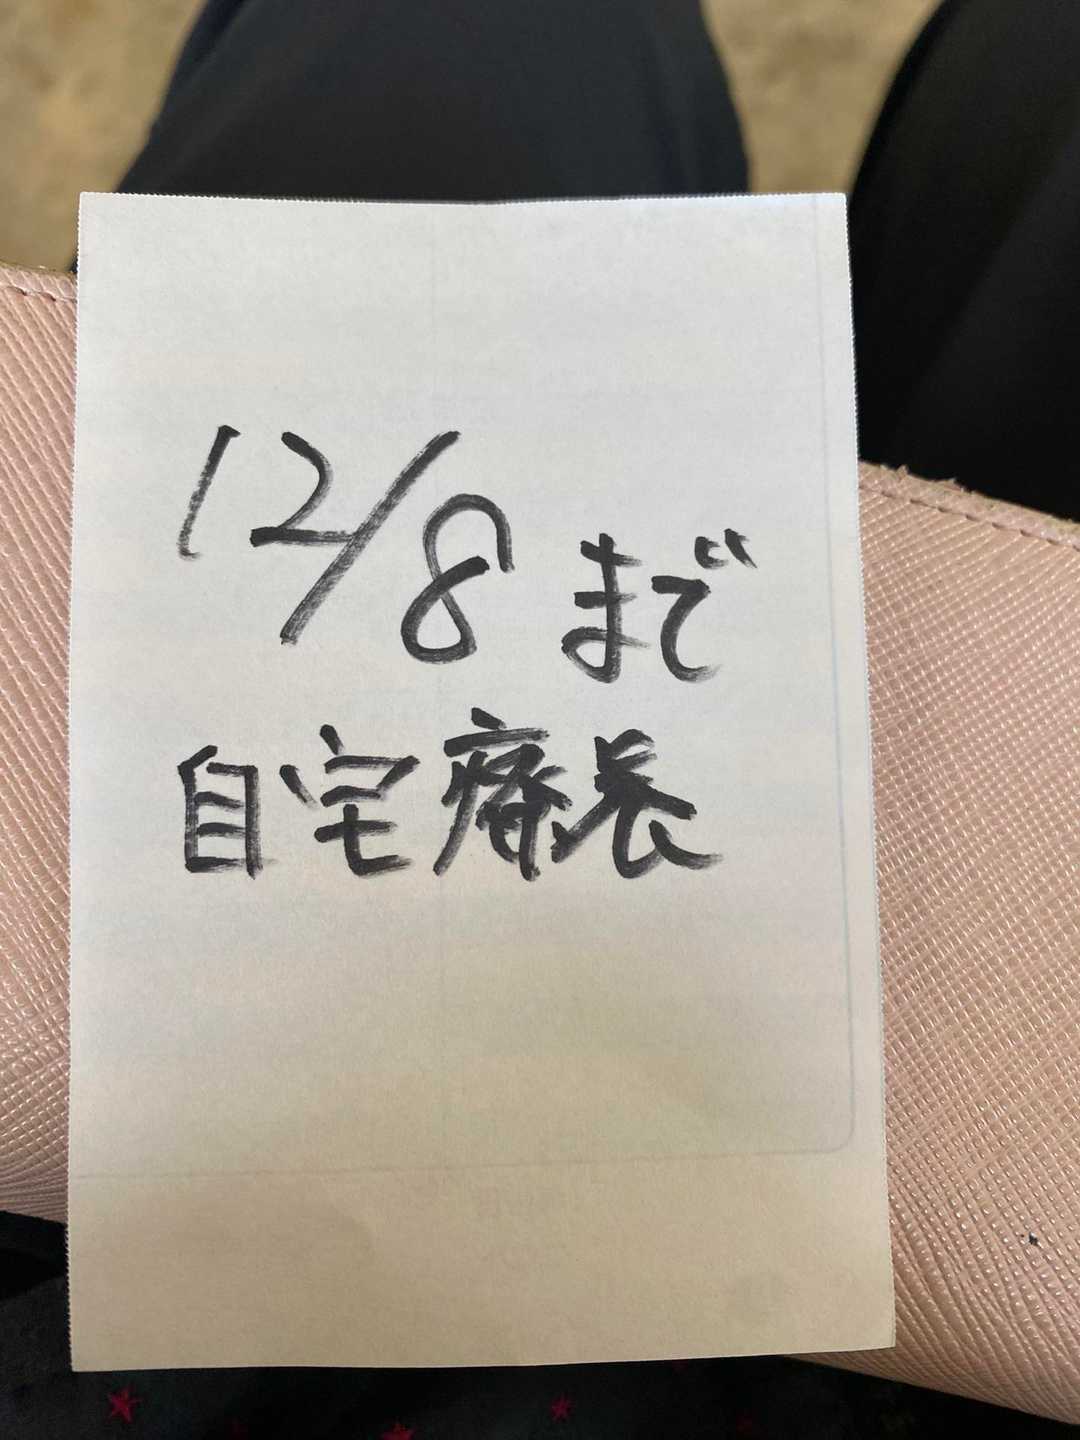 12/8まで
自宅療養